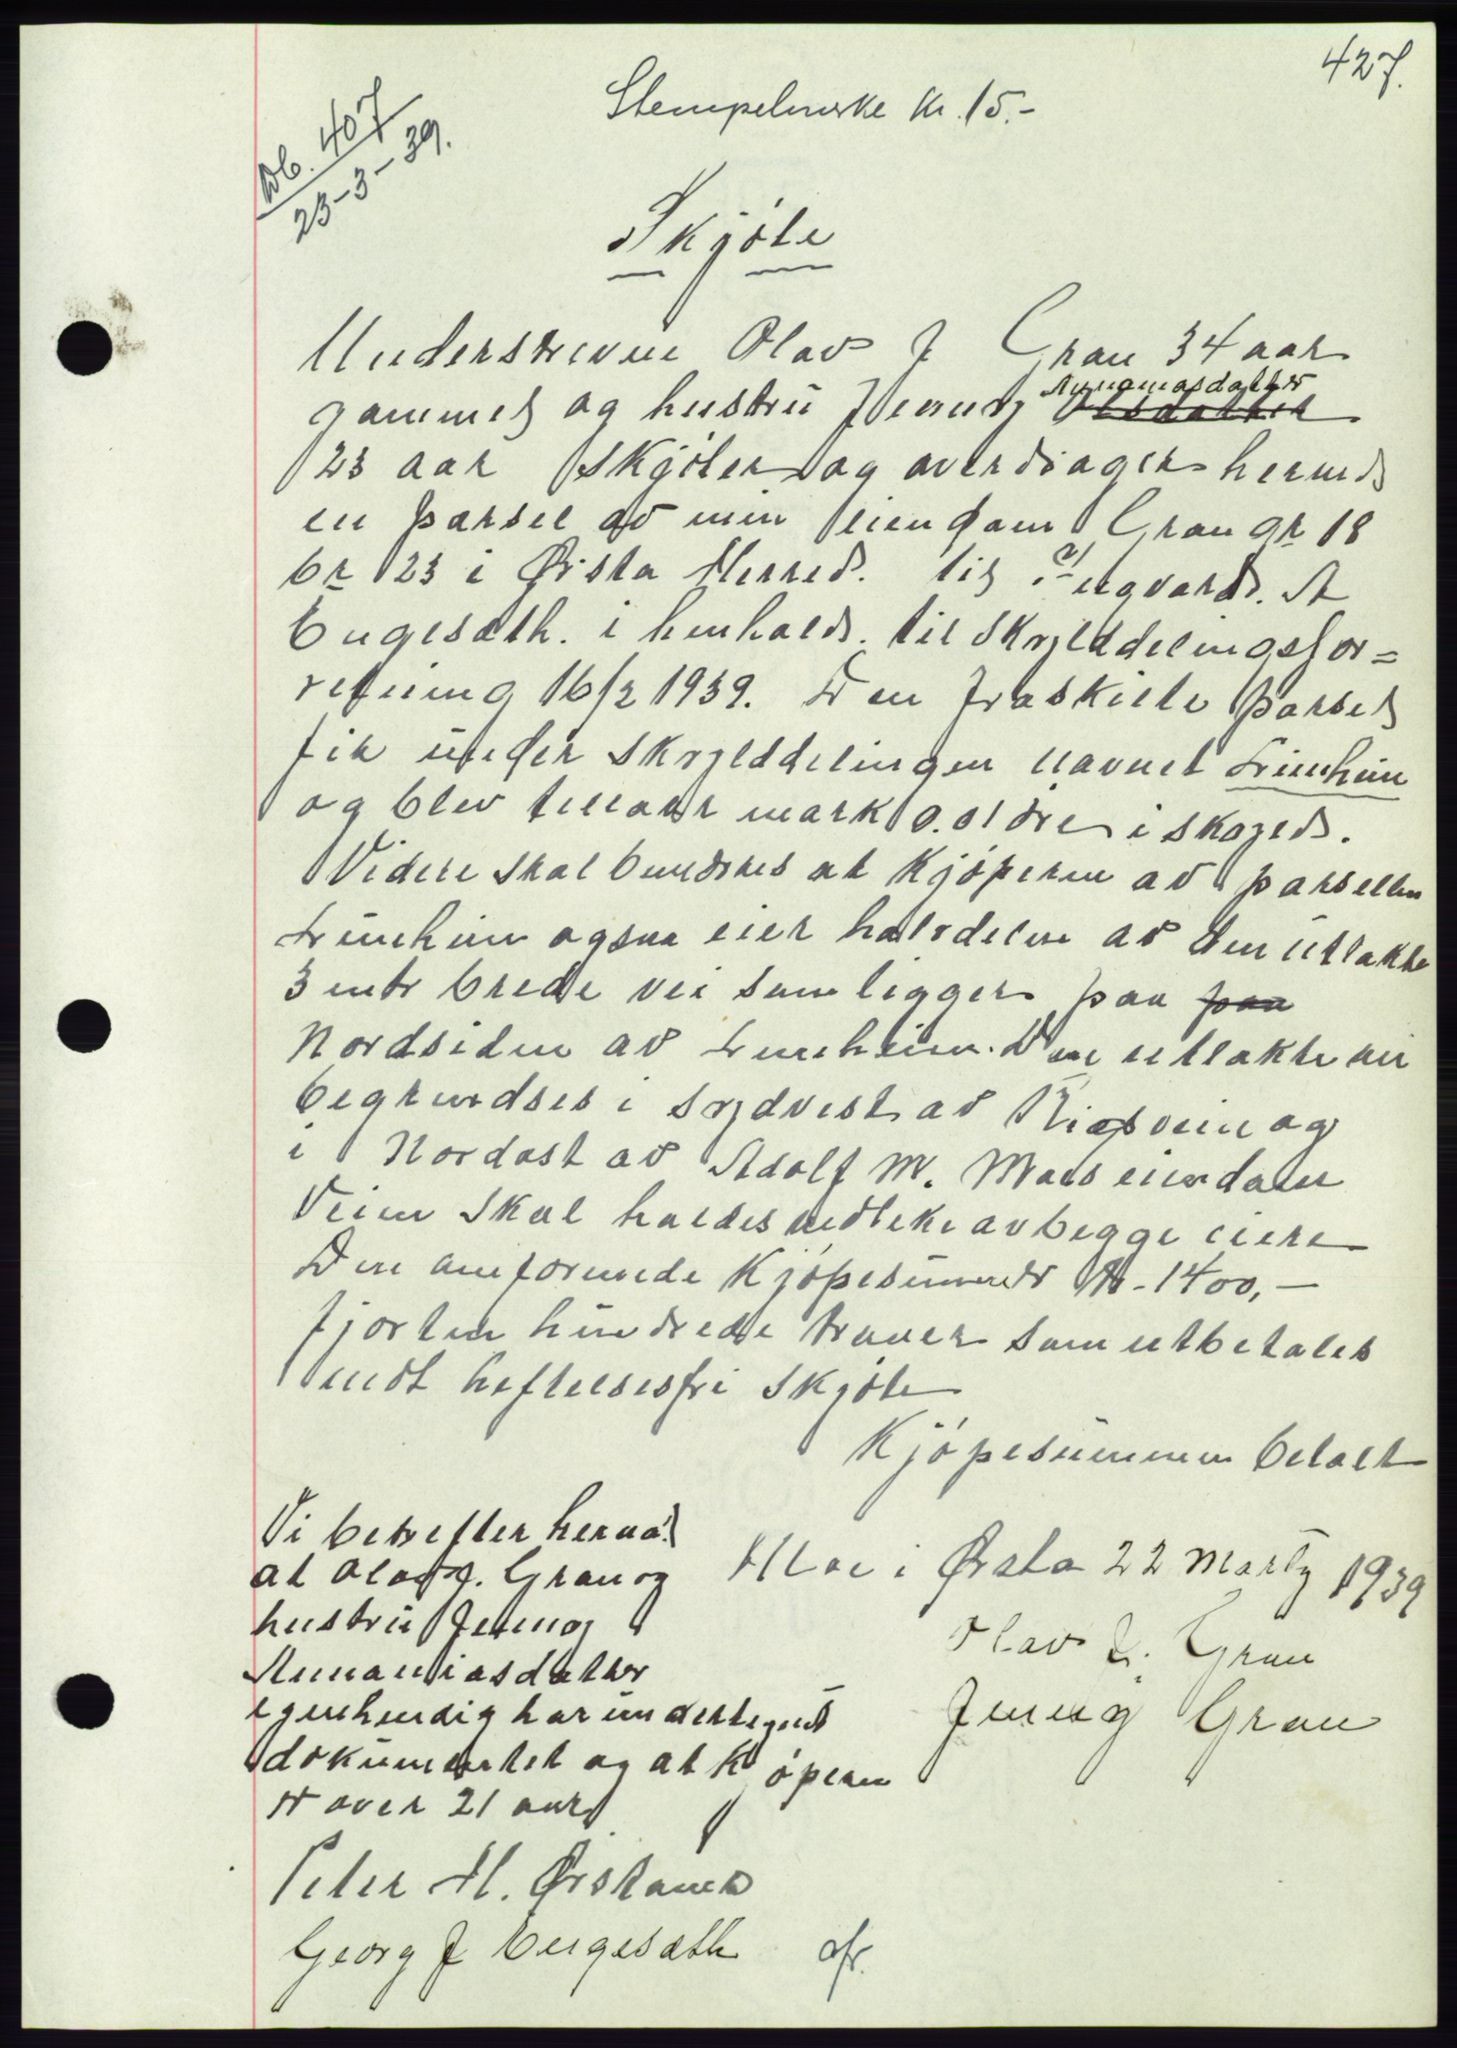 427.
Stempelmerke kr. 15.-
Db. 407
23-3-39.
Skjöte
Underskrevne Olav J Gran 34 aar
gammel og hustru Jenny Annaniasdatter Olsdatter
23 aar skjöter og overdrager herved
en parsel av min eiendom Gran gr 18
br 23 i Ørsta Herred. til Ingvard. A
Engesæth. i henhold. til skylddelingsfor=
retning 16/2 1939. Den fraskilte parsel
fik under skylddelingen navnet Lineheim
og blev tillagt mark 0.01 öre i skyld.
Videre skal bemerkes at kjöperen av parsellen
Lineheim ogsaa eier halvdelen av den utlakte
3 mtr brede vei som ligger paa paa
Nordsiden av Lineheim. Den utlakte vei
begrendses i sydvest av Riksveien og
i Nordost av Adolf M. Moes eiendom
Veien skal holdes vedlike av begge eiere
Den omforenede kjöpesum er kr - 1400,-
fjorten hundrede kroner som utbetales
mot heftelsesfri skjöte
Kjöpesummen betalt
Vi bekrefter herved
at Olav J. Gran og
hustru Jenny
Annaniasdatter
egenhendig har undertegnet
dokumentet og at Kjöperen
er over 21 aar
Moe i Ørsta 22 Marts 1939
Olav J. Gran
Jenny Gran
Peter M. Ørstavik
Georg J Engesæth